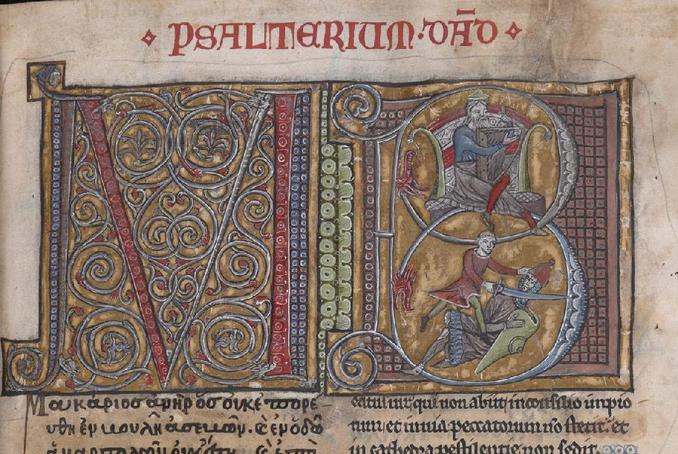 PSALTERIUM·DĀD
M
Μακαριοσ ανηρ οσ ουκ επορε
υθη εν ασεμων. εν οδω
ουκ
B
eatus uir qui non abiit in consilio impio
rum et in uia peccatorum nō stetit. et
in cathedra pestilentie non sedit.